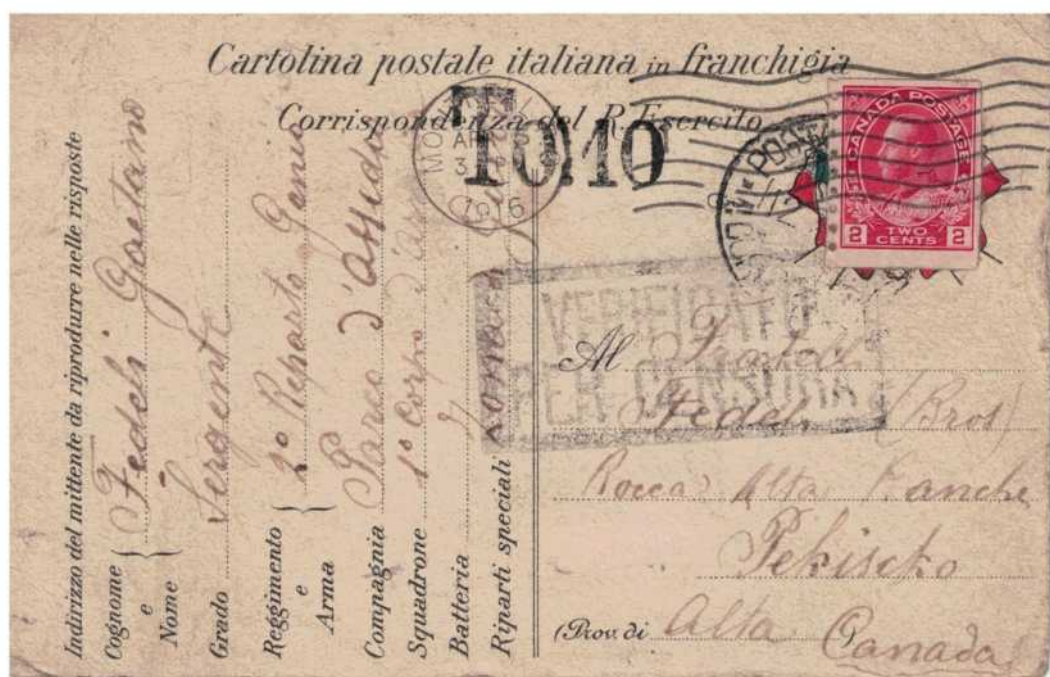 Cartolina postale italiana in franchigia
Corrispondenza del R. Esercito
MONTREAL
1916
T 0.10
CANADA POSTAGE
2 TWO CENTS 2
VERIFICATO
PER CENSURA
Indirizzo del mittente da riprodurre nelle risposte
Cognome e Nome Fedeli Gaetano
Grado Sergente
Reggimento e Arma 2° Reparto Genio
Compagnia Parco d'assedio
Squadrone 1° Corpo d'
Batteria
Riparti speciali
Al Fratelli
Fedeli (Bros)
Rocca Alta Ranche
Pekiscko
(Prov. di Alta
Canada